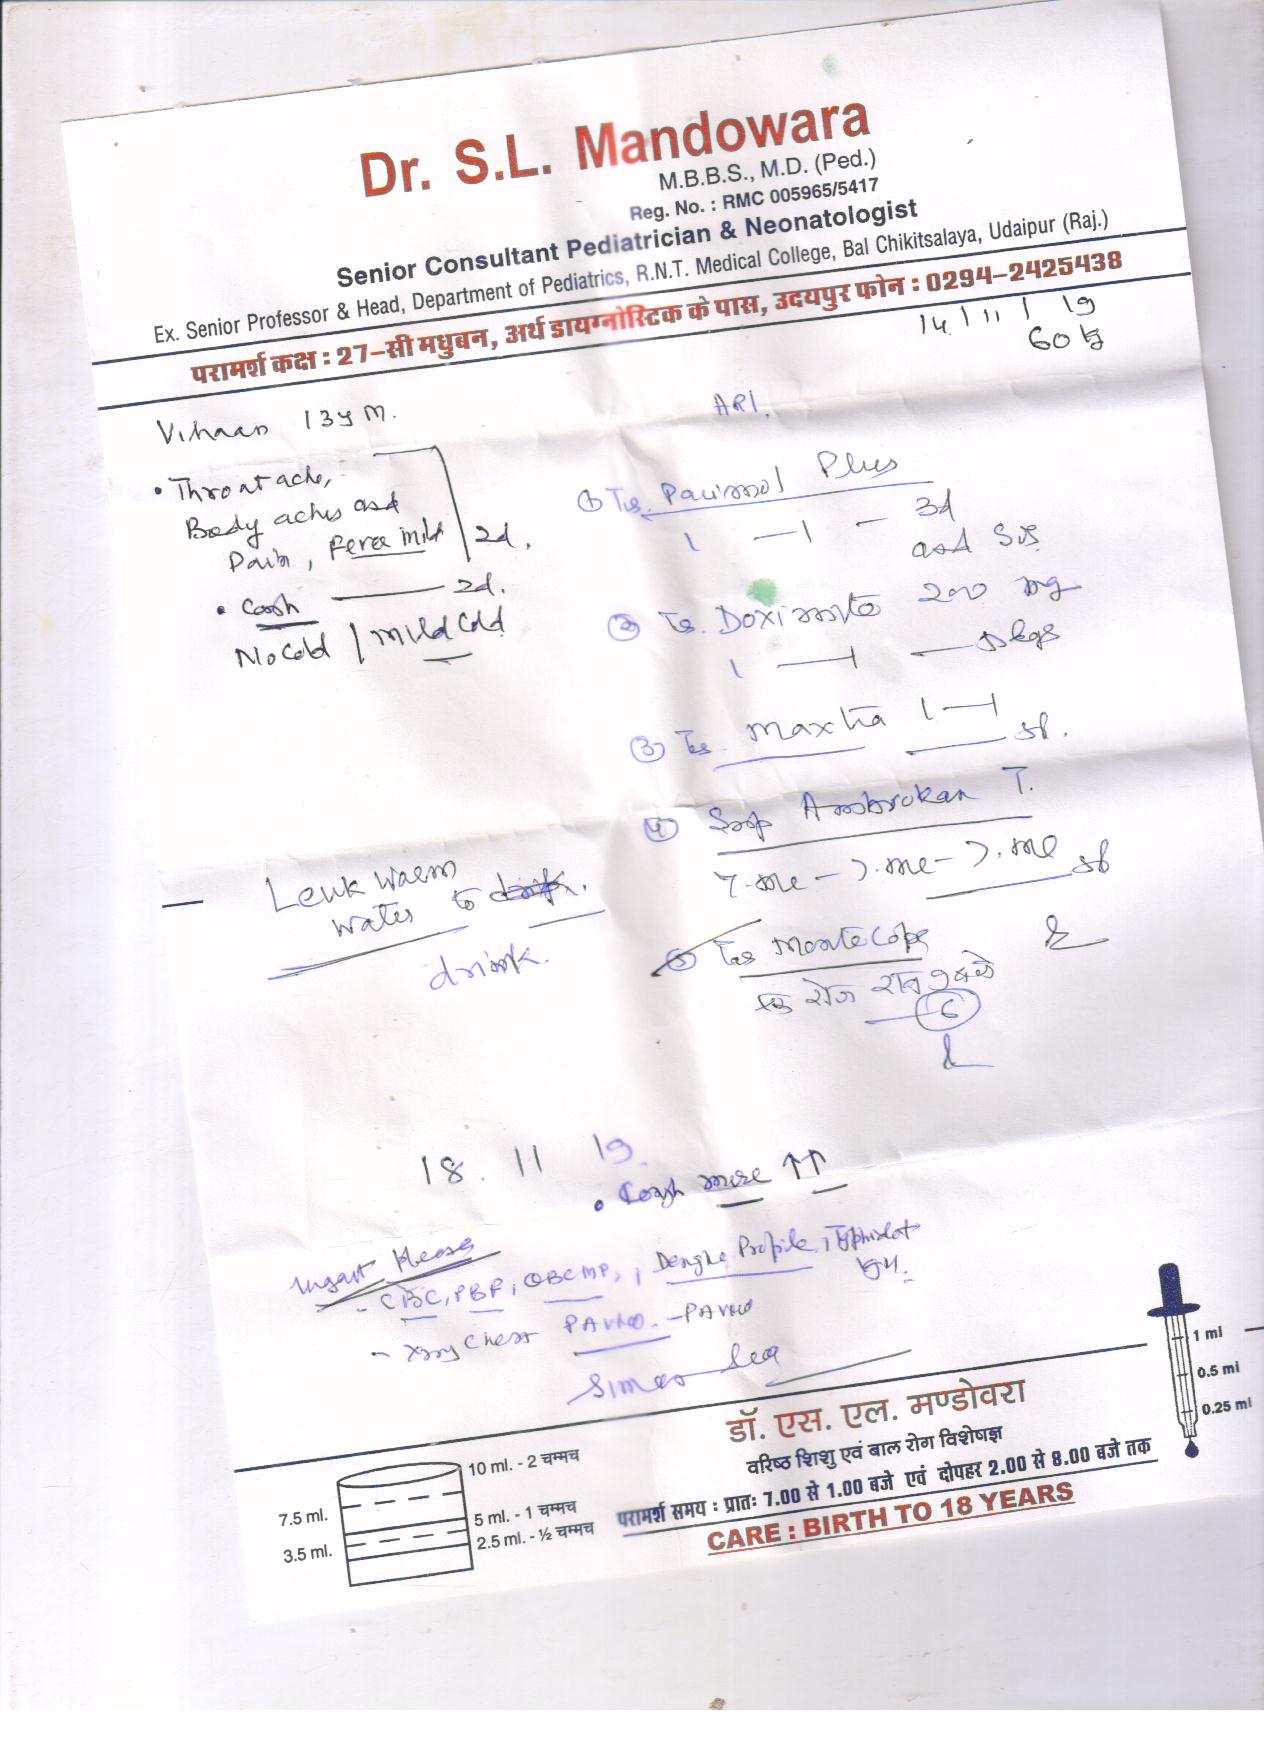 Dr. S.L. Mandowara
M.B.B.S., M.D. (Ped.)
Reg. No. : RMC 005965/5417
Senior Consultant Pediatrician & Neonatologist
Ex. Senior Professor & Head, Department of Pediatrics, R.N.T. Medical College, Bal Chikitsalaya, Udaipur (Raj.)
परामर्श कक्ष : 27-सी मधुबन, अर्थ डायग्नोस्टिक के पास, उदयपुर फोन : 0294-2425438
14 / 11 / 19
60 kg
Vihaan 13y M.
ARI.
• Throat ache,
Body aches and
Pain, fever mild 2d.
• Cough 2d.
No Cold / Mild Cold
① Plus
1 — 1 — 3d
and SOS
② 200 mg
1 — 1
③ Maxtra 1 — 1
④ Syrup T.
7.ml - 7.ml - 7.ml
Leuk warm
water to drink.
drink.
⑤ Tab
रोज रात 9 बजे
6
18 . 11 19.
• Cough more ↑↑
Urgent Please
- CBC, PBF, QBC MP, Dengue Profile,
IgM.
- Xray Chest PA view. - PA view
डॉ. एस. एल. मण्डोवरा
वरिष्ठ शिशु एवं बाल रोग विशेषज्ञ
परामर्श समय : प्रातः 7.00 से 1.00 बजे एवं दोपहर 2.00 से 8.00 बजे तक
CARE : BIRTH TO 18 YEARS
10 ml. - 2 चम्मच
7.5 ml.
5 ml. - 1 चम्मच
2.5 ml. - ½ चम्मच
3.5 ml.
1 ml
0.5 ml
0.25 ml